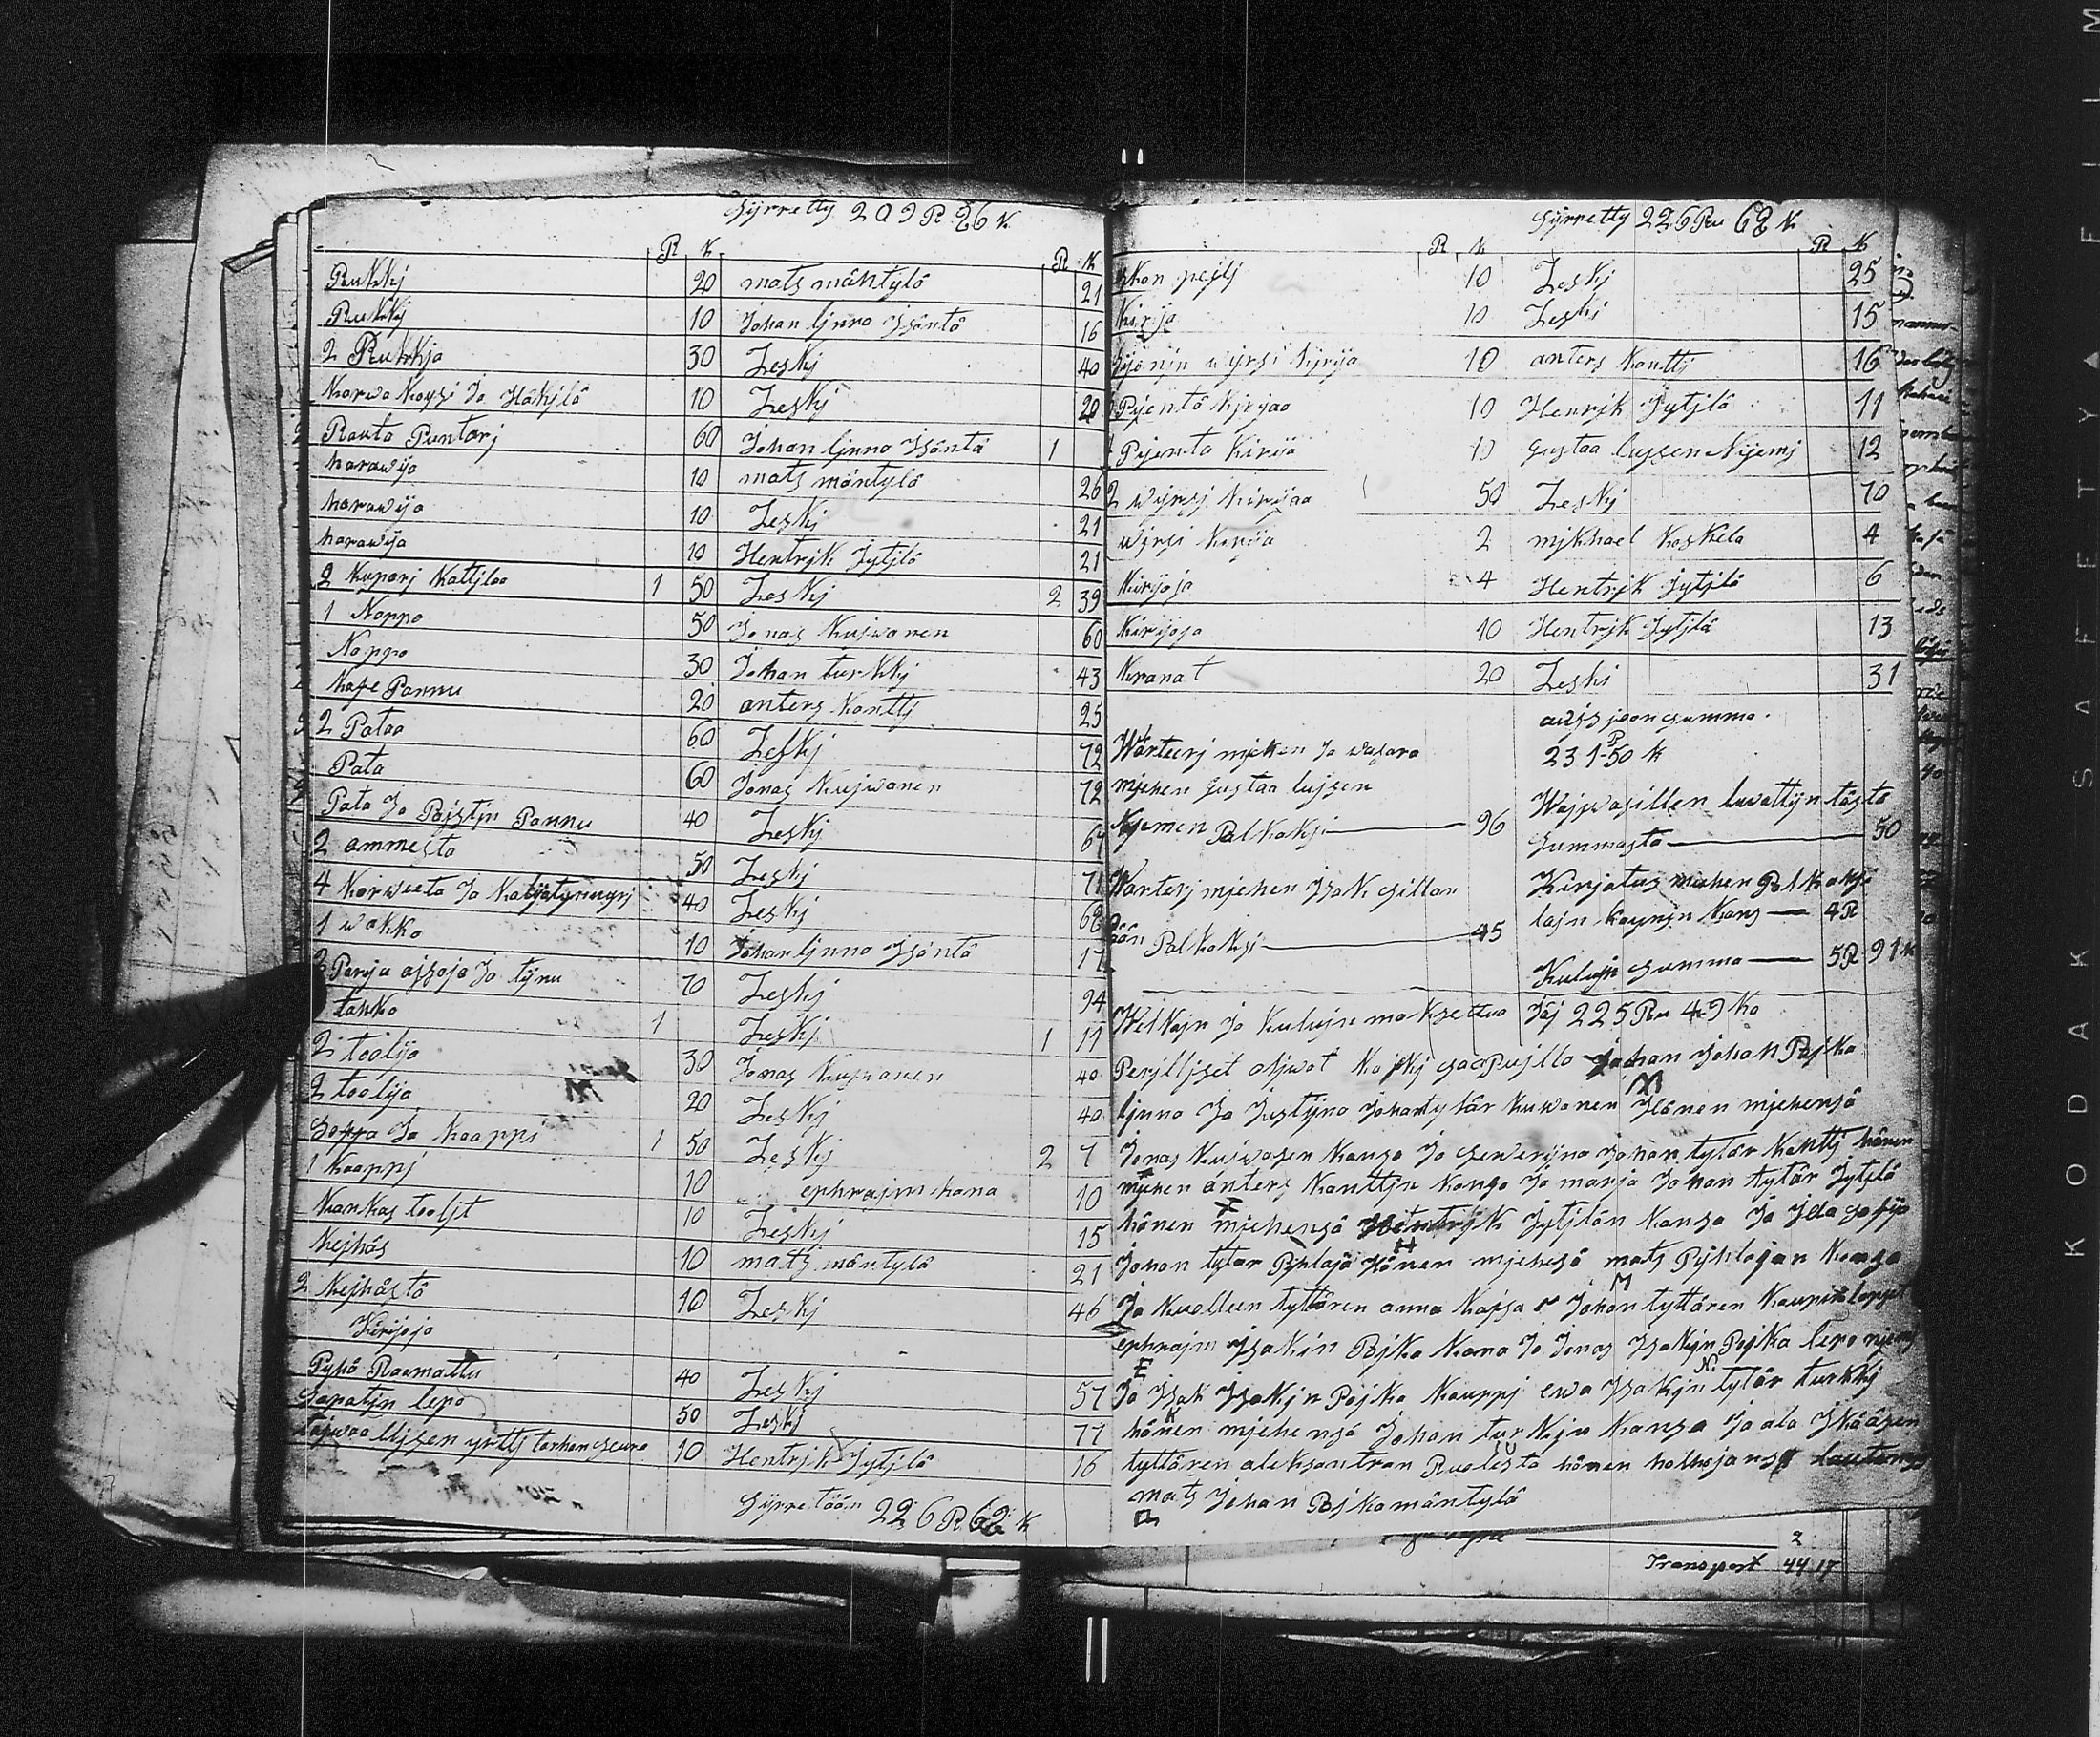 Syrretty 209 R 26 K
R K R K
Rukkj 20 mats mäntylä 21
Rukkj 10 Johan ljnna Jsäntä 16
2 Rukkja 30 Leskj 40
Karwa Koysi Ja Häkjlä 10 Leskj 20
Rauta Puntarj 60 Johan ljnna Jsäntä 1
harawija 10 mats mäntylä 26
harawija 10 Leskj 21
harawija 10 Hentrjk Jytjlä 21
2 Kuparj Kattjlaa 1 50 Leskj 2 39
1 Nappo 50 Jonas Kujwanen 60
Nappo 30 Johan turkkj 43
Kafe Pannu 20 anters Kanttj 25
2 Pataa 60 Leskj 72
Pata 60 Jonas Kujwanen 72
Pata Ja Pajstjn Pannu 40 Leskj 64
2 ammesta 50 Leskj 71
4 Korweeta Ja 40 Leskj 68
1 wakko 10 Johan ljnna Jsäntä 17
Parju ajsoja Ja tijnu 70 Leskj 94
tahko 1 Leskj 1 11
2 toolija 30 Jonas Kujwanen 40
2 toolija 20 Leskj 40
Soffa Ja Kaappi 1 50 Leskj 2 7
1 Kaappj 10 ephrajm hana 10
Kankas tooljt 10 Leskj 15
Kejhäs 10 mats mäntylä 21
2 Kejhästä 10 Leskj 46
Kirijoja
Pyhä Raamattu 40 Leskj 57
Sapatjn lepo 50 Leskj 77
tajwaalljsen yrttj tarhan seura 10 Hentrjk Jytjlä 16
Syrretään 226 R 62 K
Syrretty 226 Ru 62 K
R K R K
pejlj 10 Leskj 25
Kirija 10 Leskj 15
wijrsi Kirija 10 anters Kanttj 16
Pijentä Kirijaa 10 Henrjk Jytjlä 11
Pijentä Kirija 10 Gustaa lujsen Nijemj 12
2 wijrsj Kirijaa 50 Leskj 70
wijrsi Kirija 2 mjkhael Koskela 4
Kirijoja 4 Hentrjk Jytjlä 6
Kirijoja 10 Hentrjk Jytjlä 13
Kranat 20 Leski 31
summa
Warteerj mjehen Ja wasara 231 R 50 K
mjehen Gustaa lujsen
Njemen Palkaksi 96
Wajwasillen luwattijn tästä
Summasta 50
Warterj mjehen Jsak sillan
pään Palkaksi 45
Kirjatus miehen Palkaksi
lajn Kaynjn Kans 4 R
Kulujn summa 5 R 91 K
Welkajn Ja Kulujn maksettua Jäj 225 Ru 49 Ko
Perjlljset oljwat Kajkkj saapujlla Johan Johan Pojka
ljnna Ja Justijna Johantytär Kuiwanen Hänen mjehensä
Jonas Kuiwasen Kansa Ja sewerijna Johan tytär Kanttj hänen
mjehen anters Kanttjn Kansa Ja marja Johan tytär Jytjlä
hänen mjehensä Hentrjk Jytjlän Kansa Ja Jda sofija
Johan tytär Pjhlaja Hänen mjehesä mats Pjhlajan Kansa
Ja Kuolleen tyttären anna Kajsa Johan tyttären Kaupin lapset
ephrajm Jsakin Pojka Kana Ja Jonas Jsakjn Pojka leponjemj
Ja Jsak Jsakjn Pojka Kauppj ewa Jsakjn tytär turkkj
hänen mjehensä Johan turkkjn Kansa Ja ala Jkääsen
tyttären aleksantran Puolesta hänen holhojansa lautamjes
mats Johan Pojka mäntylä
2
Transport 44 17
KODAK SAFETY FILM